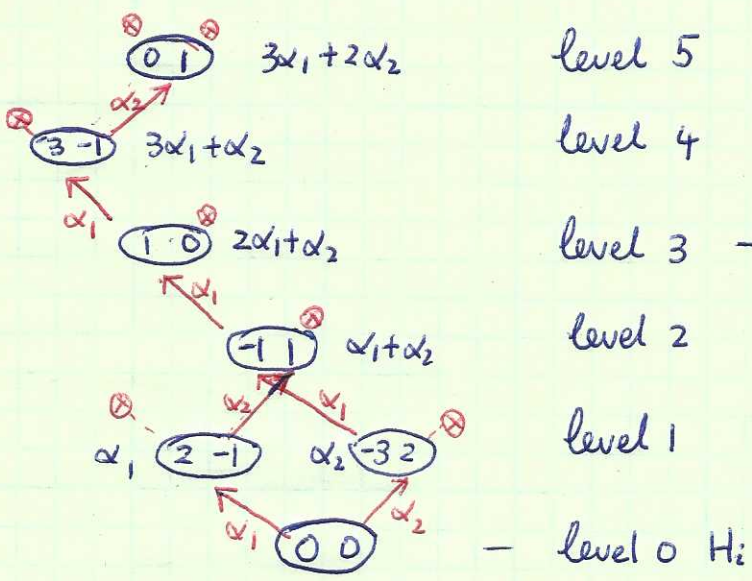 ⊗ ⊗
0 1 3α₁+2α₂ level 5
α₂
⊗
3 -1 3α₁+α₂ level 4
α₁ ⊗
1 0 2α₁+α₂ level 3 -
α₁
⊗
-1 1 α₁+α₂ level 2
⊗ α₂ α₁ ⊗
α₁ 2 -1 α₂ -3 2 level 1
α₁ α₂
0 0 - level 0 Hi